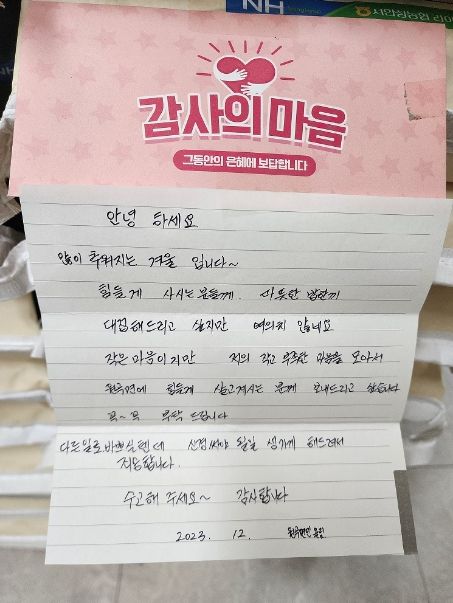 NH
서안성농협
감사의 마음
그동안의 은혜에 보답합니다
안녕 하세요
많이 추워지는 겨울 입니다~
힘들게 사시는 분들께. 따뜻한 밥한끼
대접해드리고 싶지만 여의치 않네요
작은 마음이지만 저의 작고 부족한 마음을 모아서
원곡면에 힘들게 살고계시는 분께 보내드리고 싶습니다
꼭~꼭 부탁 드립니다
다른일로 바쁘실텐데 신경써야 될일 생기게 해드려서
죄송합니다.
수고해 주세요~ 감사합니다
2023. 12. 원곡면민 올림